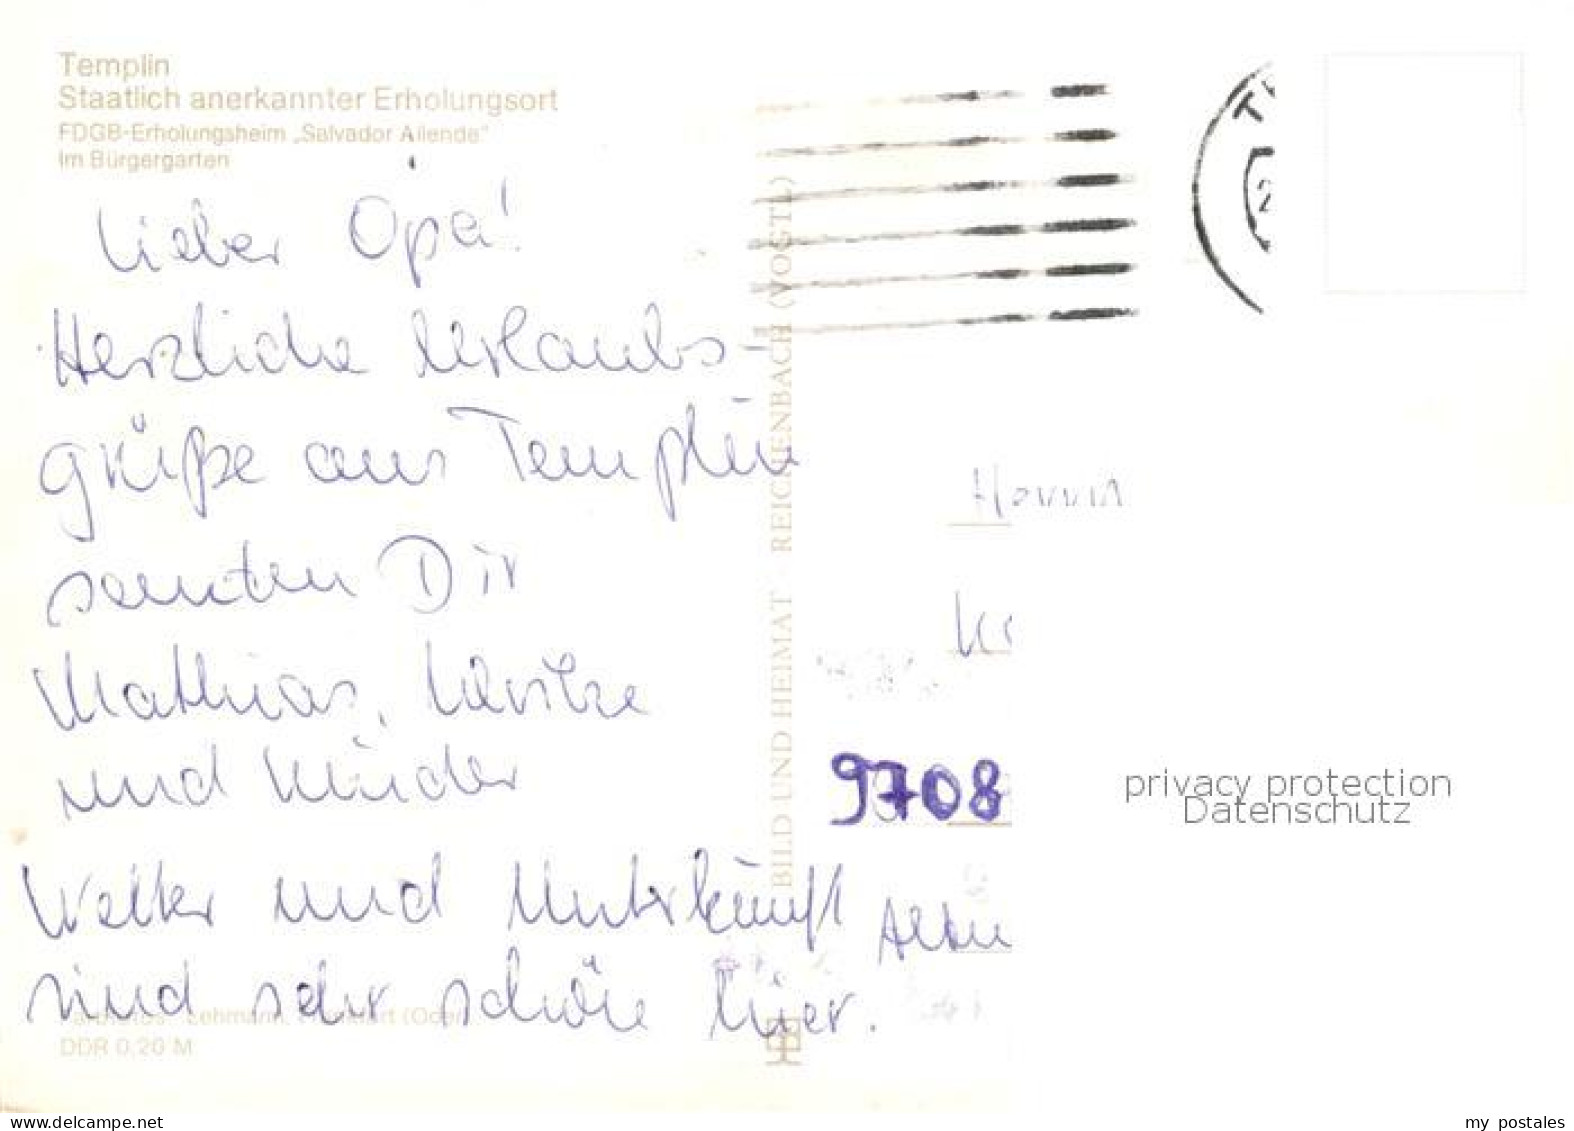 Templin
Staatlich anerkannter Erholungsort
FDGB-Erholungsheim „Salvador Allende"
Im Bürgergarten
Lieber Opa!
Herzliche Urlaubs-
grüße aus Templin
senden Dir
Mathias, Ulrike
und Kinder
Wetter und Unterkunft
sind sehr schön hier.
Farbfotos: Lehmann, Frankfurt (Oder)
DDR 0,20 M
BILD UND HEIMAT REICHENBACH (VOGTL)
Herrn
9708
privacy protection
Datenschutz
www.delcampe.net
my_postales